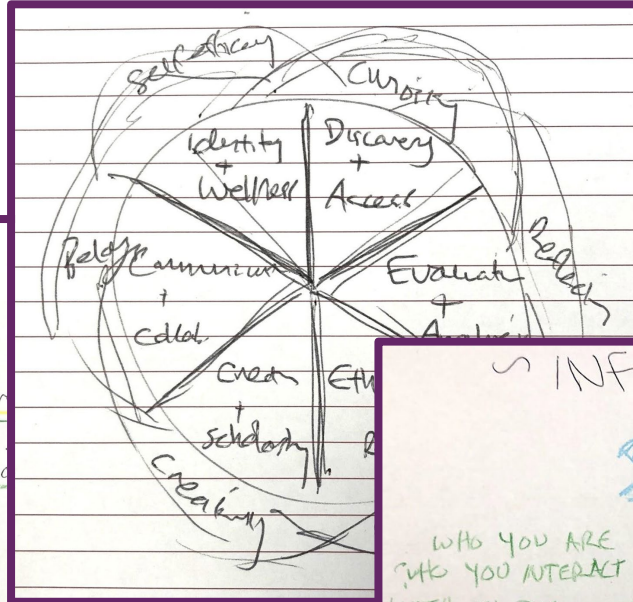 Self efficacy
Curiosity
Identity
+
Wellness
Discovery
+
Access
Belong
Communicat
+
Collab
Evaluatn
+
Reflectn
Creatn
+
Scholarship
Eth
R
Creativity
INF
WHO YOU ARE
WHO YOU INTERACT